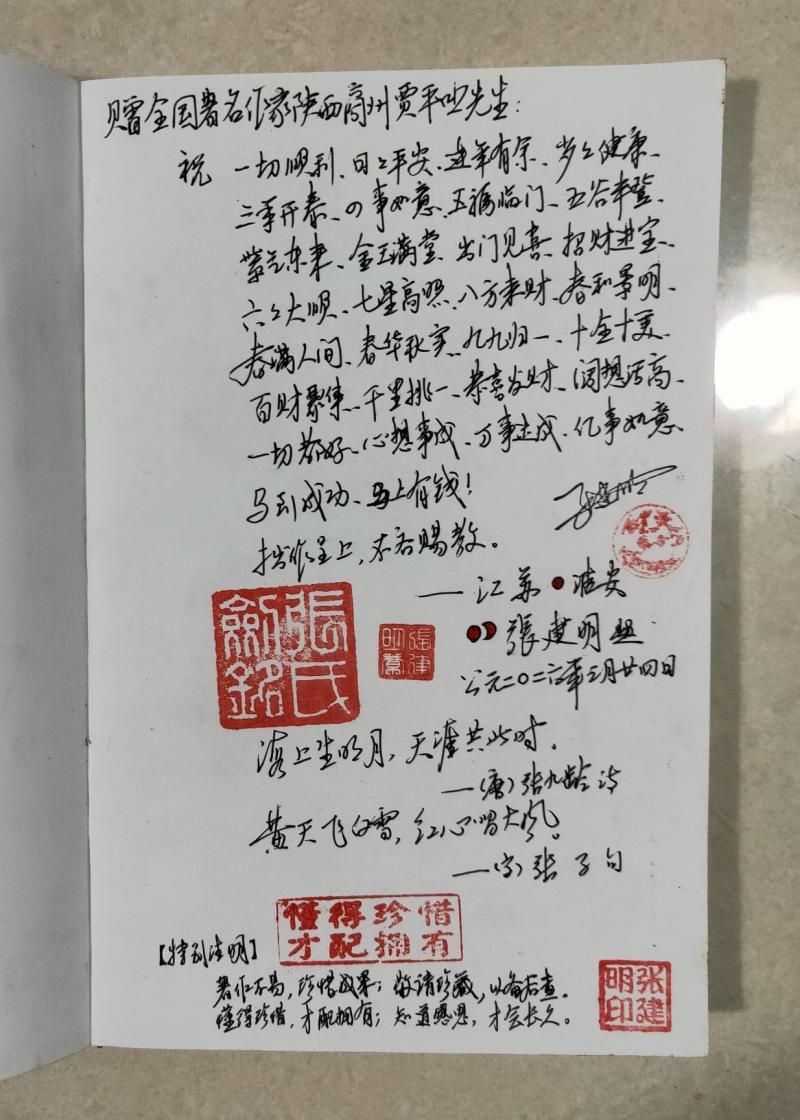 赠全国著名作家陕西商州贾平凹先生：
祝 一切顺利、日日平安、连年有余、岁岁健康、
三季开泰、四事如意、五福临门、五谷丰登、
紫气东来、金玉满堂、出门见喜、招财进宝、
六六大顺、七星高照、八方来财、春和景明、
春满人间、春华秋实、九九归一、十全十美、
百财聚集、千里挑一、恭喜发财、阔想活高、
一切都好、心想事成、万事达成、亿事如意、
马到成功、马上有钱！
拙作呈上，不吝赐教。
——江苏●淮安
張建明
公元二〇二六年三月廿四日
張氏劍銘
張建明
海上生明月，天涯共此时。
——（唐）张九龄 诗
黄天飞白雪，红心唱大风。
张子 句
懂得珍惜
才配拥有
【特别注明】
著作不易，珍惜成果；敬请珍藏，以备后查。
懂得珍惜，才配拥有；知道感恩，才会长久。
张建明印